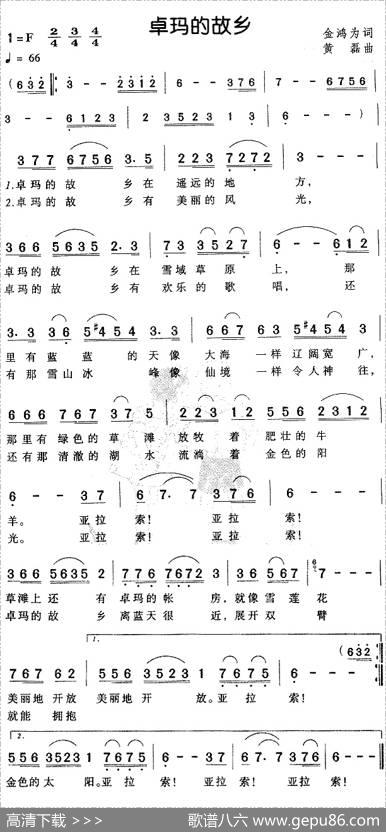 卓玛的故乡
1=F 2/4 3/4 4/4
金鸿为词
♩=66
黄 磊曲
(6 3 2 | 3 - - 2 3 1 2 | 6 - - 3 7 6 | 7 - - 6 7 5 6
3 - - 6 1 2 3 | 1 2 3 5 2 3 | 6 - - - ) |
3 7 7 6 7 5 6 3. 5 | 2 2 3 7 2 7 2 | 3 - - - |
1.卓玛的故 乡在 遥远的地 方,
2.卓玛的故 乡有 美丽的风 光,
3 6 6 5 6 3 5 2. 3 | 7 3 3 5 2 7 | 6 - - 6 1 2 |
卓玛的故 乡在 雪域草原 上, 那
卓玛的故 乡有 欢乐的歌 唱, 还
3. 3 3 6 5 #4 5 4 3. 3 | 6 6 7 6 3 5 #4 5 4 3 |
里有蓝 蓝 的天像 大海 一样辽阔宽 广,
有那雪山冰 峰像 仙境 一样令人神 往,
6 6 6 7 6 7 3 7 5 | 2 2 3 1 2 5 5 6 2 3 1 2 |
那里有 绿色的草 滩 放牧 着 肥壮的牛
还有那 清澈的湖 水 流淌 着 金色的阳
6 - - 3 7 | 6 7. 7 3 7 6 | 6 - - - |
羊。 亚拉 索! 亚拉 索!
光。 亚拉 索! 亚拉 索!
3 6 6 5 6 3 5 2 | 7 7 6 7 6 7 2 3 | 3 6 5 6 7 | 7 - - - |
草滩上还 有 卓玛的帐 房,就像 雪 莲 花
卓玛的故 乡 离蓝天很 近,展开 双 臂
1.
(6 3 2
7 6 7 6 2 | 5 5 6 3 5 2 3 1 7 6 7 5 | 6 - - - :|
美丽地 开放 美丽地 开 放。亚 拉 索!
就能 拥抱
2.
5 5 6 3 5 2 3 1 7 6 7 5 | 6 - - 3 7 | 6 7. 7 3 7 6 | 6 - - - ||
金色的太 阳。亚拉 索! 亚拉 索! 亚拉索!
高清下载 >>>
歌谱八六 www.gepu86.com